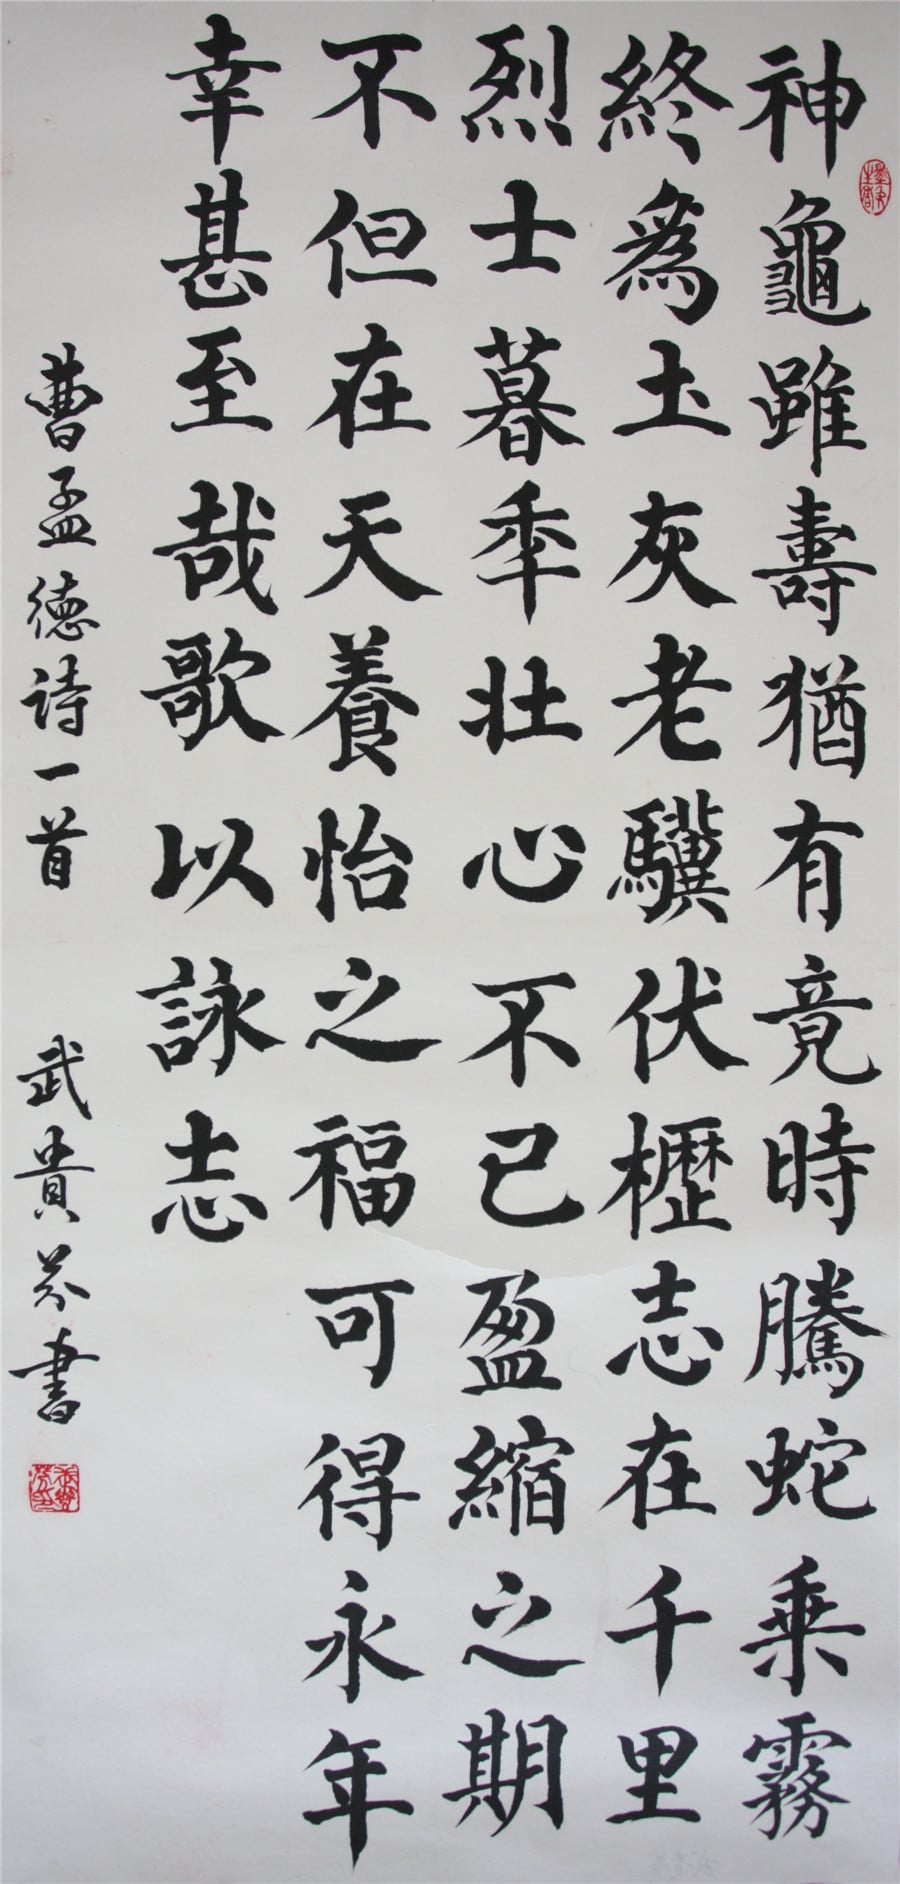 神龜雖壽猶有竟時騰蛇乗霧
終為土灰老驥伏櫪志在千里
烈士暮秊壯心不已盈縮之期
不但在天養怡之福可得永年
幸甚至哉歌以詠志
曹孟德诗一首 武貴芬書